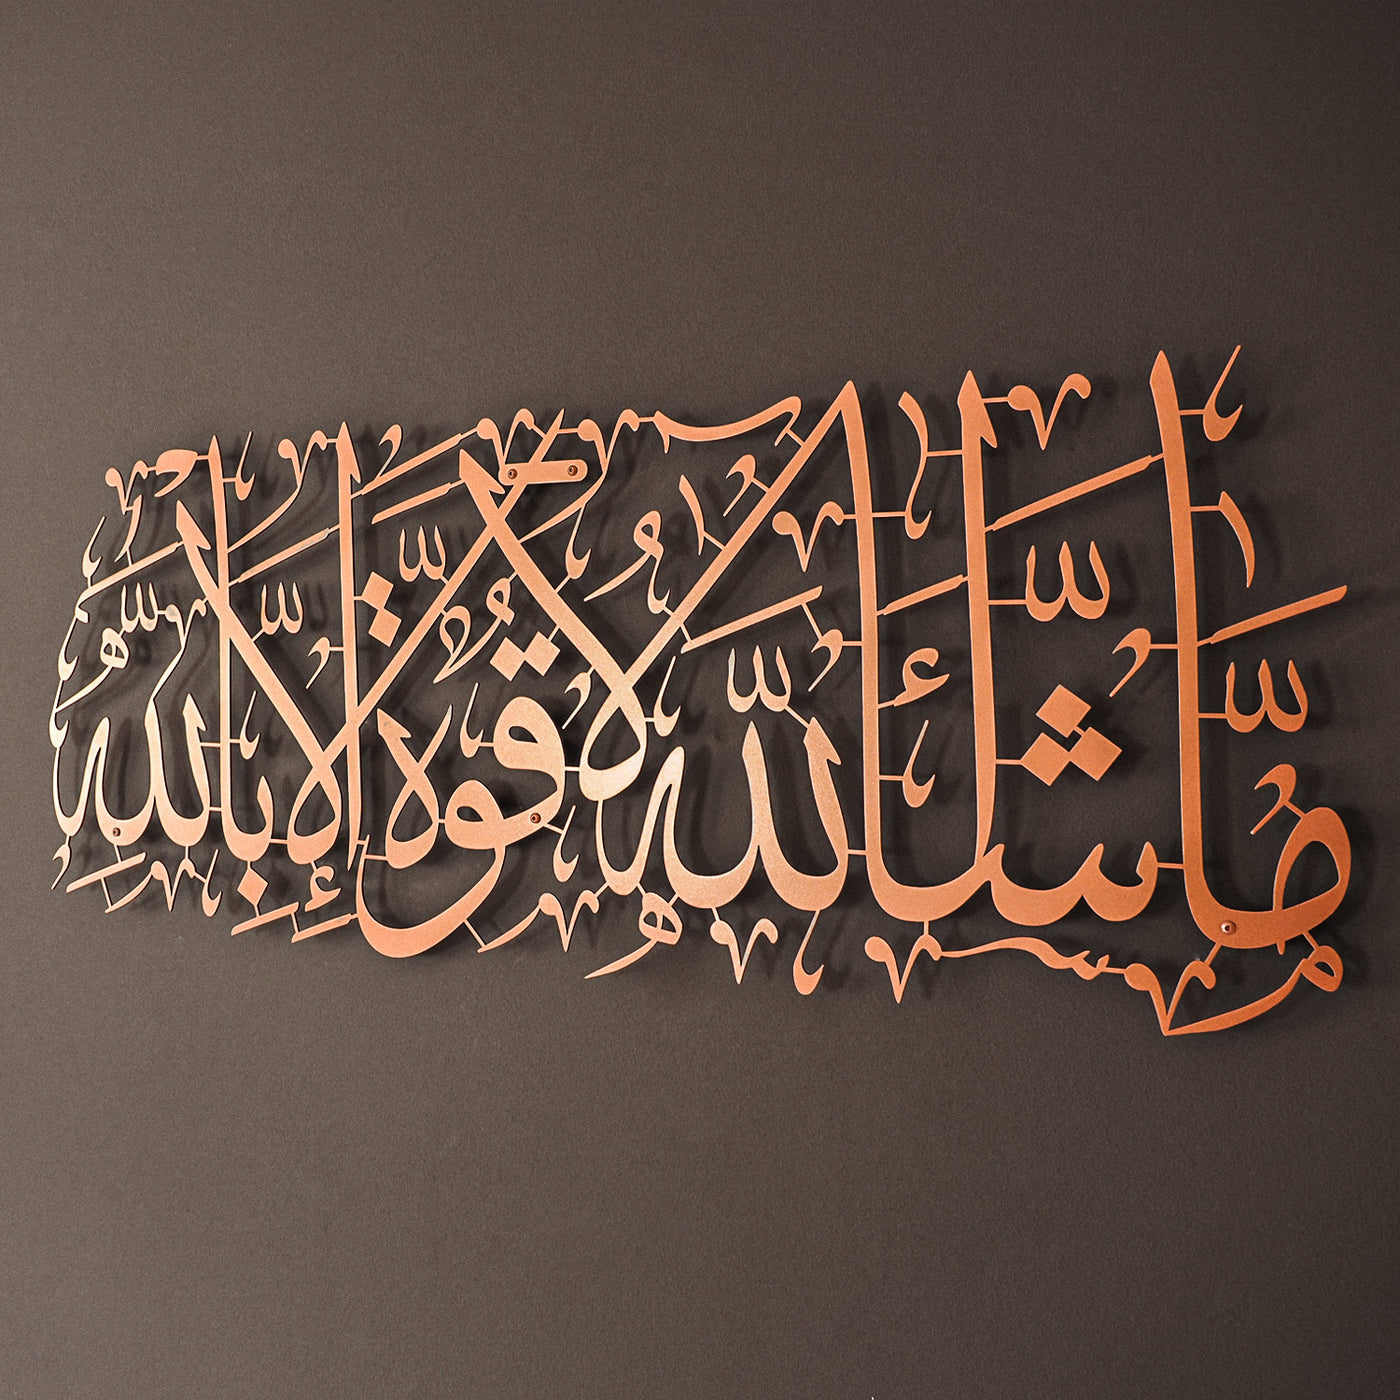 مَّاشَاءَ اللَّهُ لَا قُوَّةَ إِلَّا بِاللَّهِ